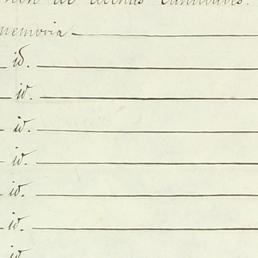 de dichas cantidades.
memoria
id.
id.
id.
id.
id.
id.
id.